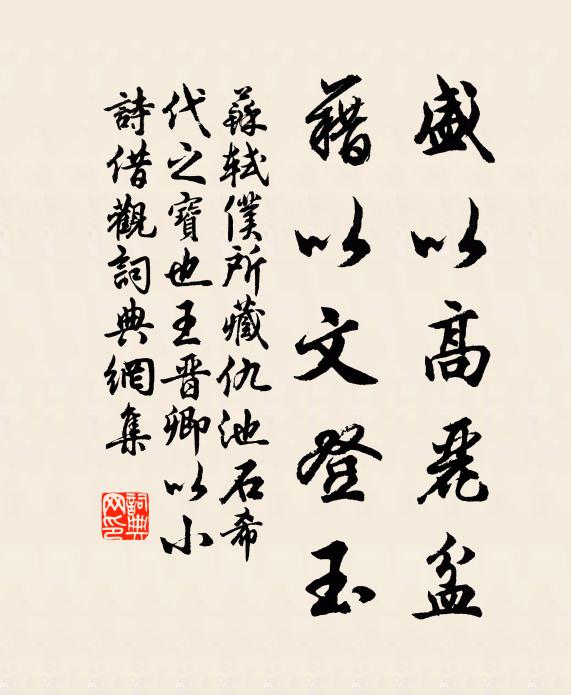 盛以高麗盆
藉以文登玉
蘇軾僕所藏仇池石希
代之寶也王晋卿以小
詩借觀詞典網集
詞典
网印